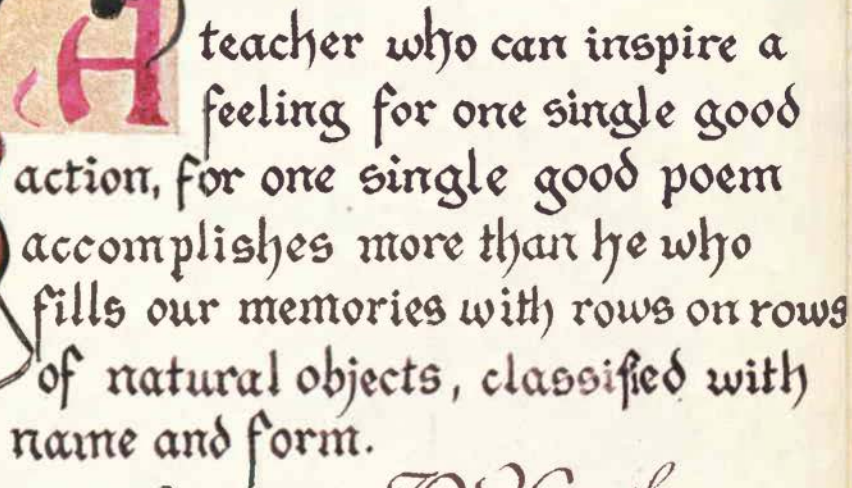 A teacher who can inspire a
feeling for one single good
action, for one single good poem
accomplishes more than he who
fills our memories with rows on rows
of natural objects, classified with
name and form.